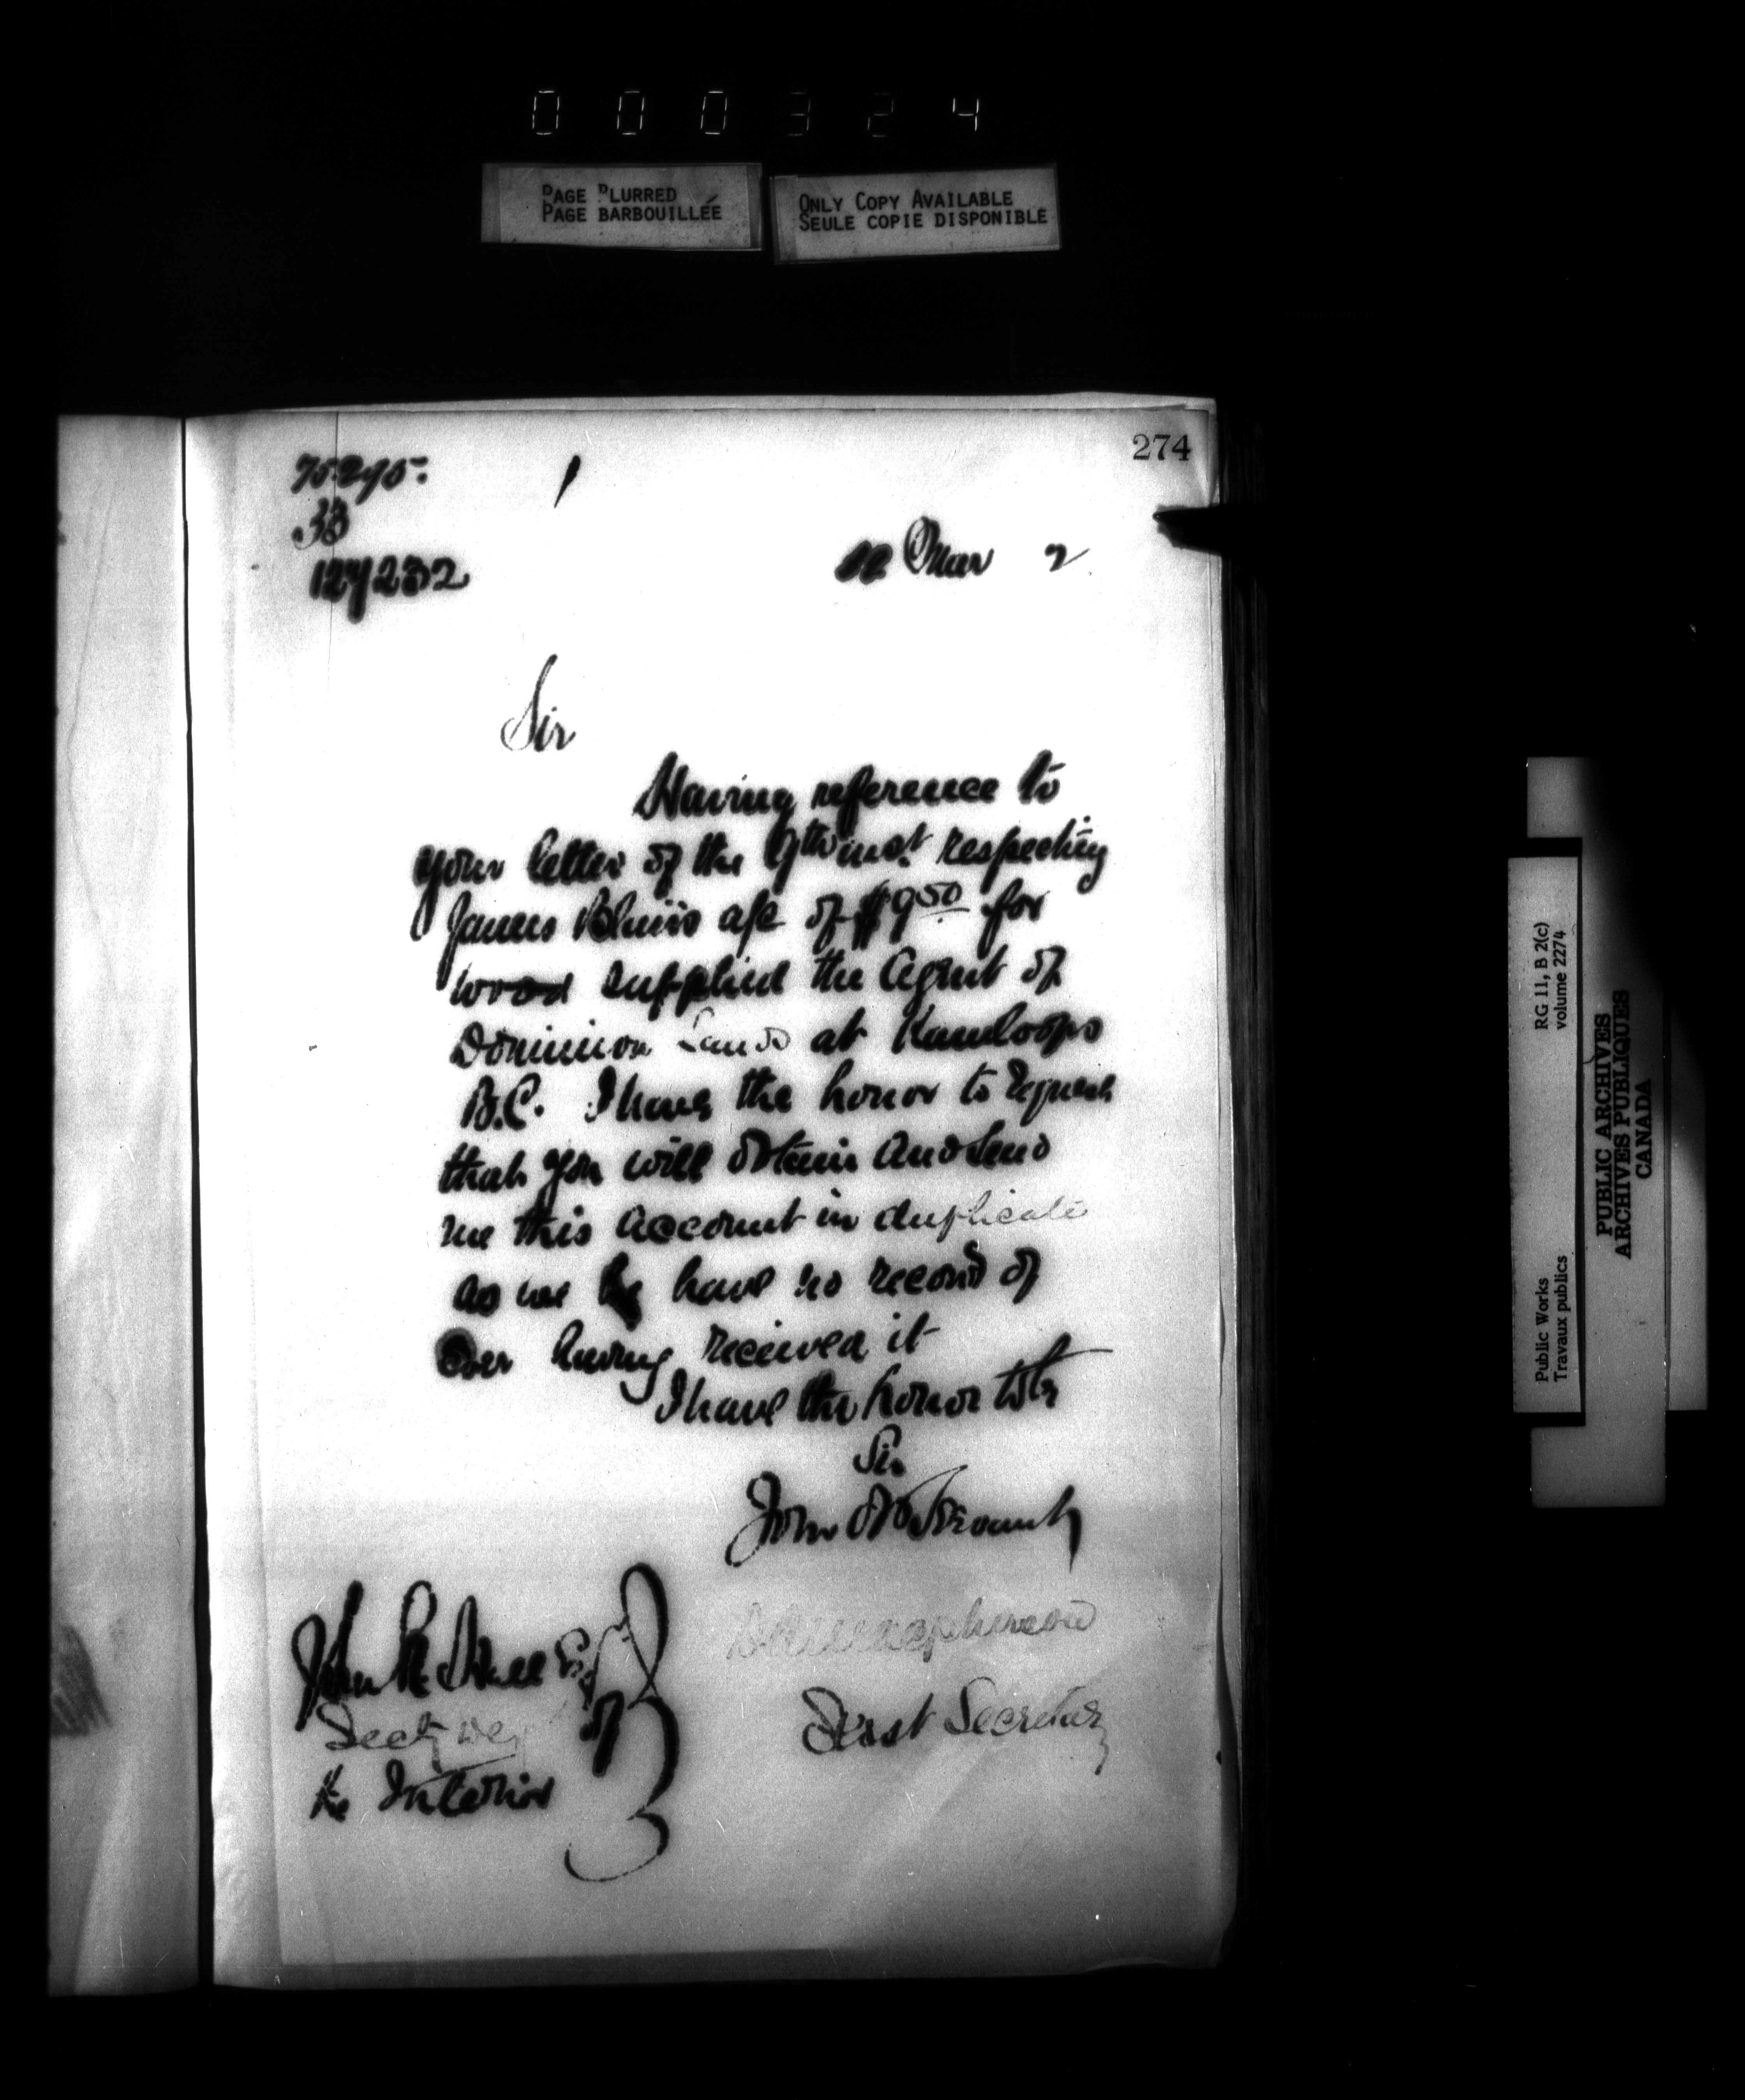 000324
PAGE BLURRED
PAGE BARBOUILLÉE
ONLY COPY AVAILABLE
SEULE COPIE DISPONIBLE
274
33
127232
Mar 2
Sir
Having reference to
your letter of the 9th inst. respecting
James a/c of $9.50 for
wood supplied the Agent of
Dominion Lands at Kamloops
B.C. I have the honor to request
that you will obtain and send
me this account in duplicate
as we have no record of
ever having received it
I have the honor to be
Sir
John
John R. Hall Esq
Secty Dept of
the Interior
Secretary
RG 11, B 2(c)
volume 2274
Public Works
Travaux publics
PUBLIC ARCHIVES
ARCHIVES PUBLIQUES
CANADA